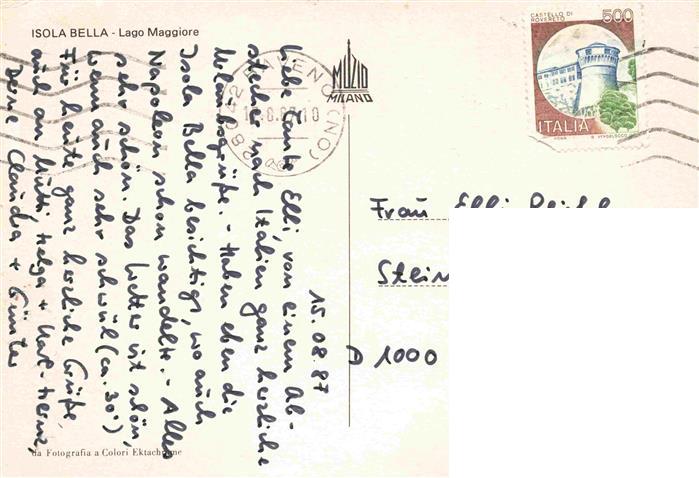 ISOLA BELLA - Lago Maggiore
15.08.87
Liebe Tante Elli, von einem Ab-
stecher nach Italien ganz herzliche
Urlaubsgrüße. - Haben eben die
Isola Bella besichtigt, wo auch
Napoleon schon wandelte. - Alles
sehr schön. Das Wetter ist schön,
wenn auch sehr schwül (ca. 30°)
Für heute ganz herzliche Grüße,
auch an Mutti, Helga + Karl-Heinz,
Deine Claudia + Günter
da Fotografia a Colori Ektachrome
MUZIO
MILANO
28042 BAVENO (NO)
8.87.10
CASTELLO DI
ROVERETO
500
ITALIA
ROMA
Frau Elli
Stein
D 1000